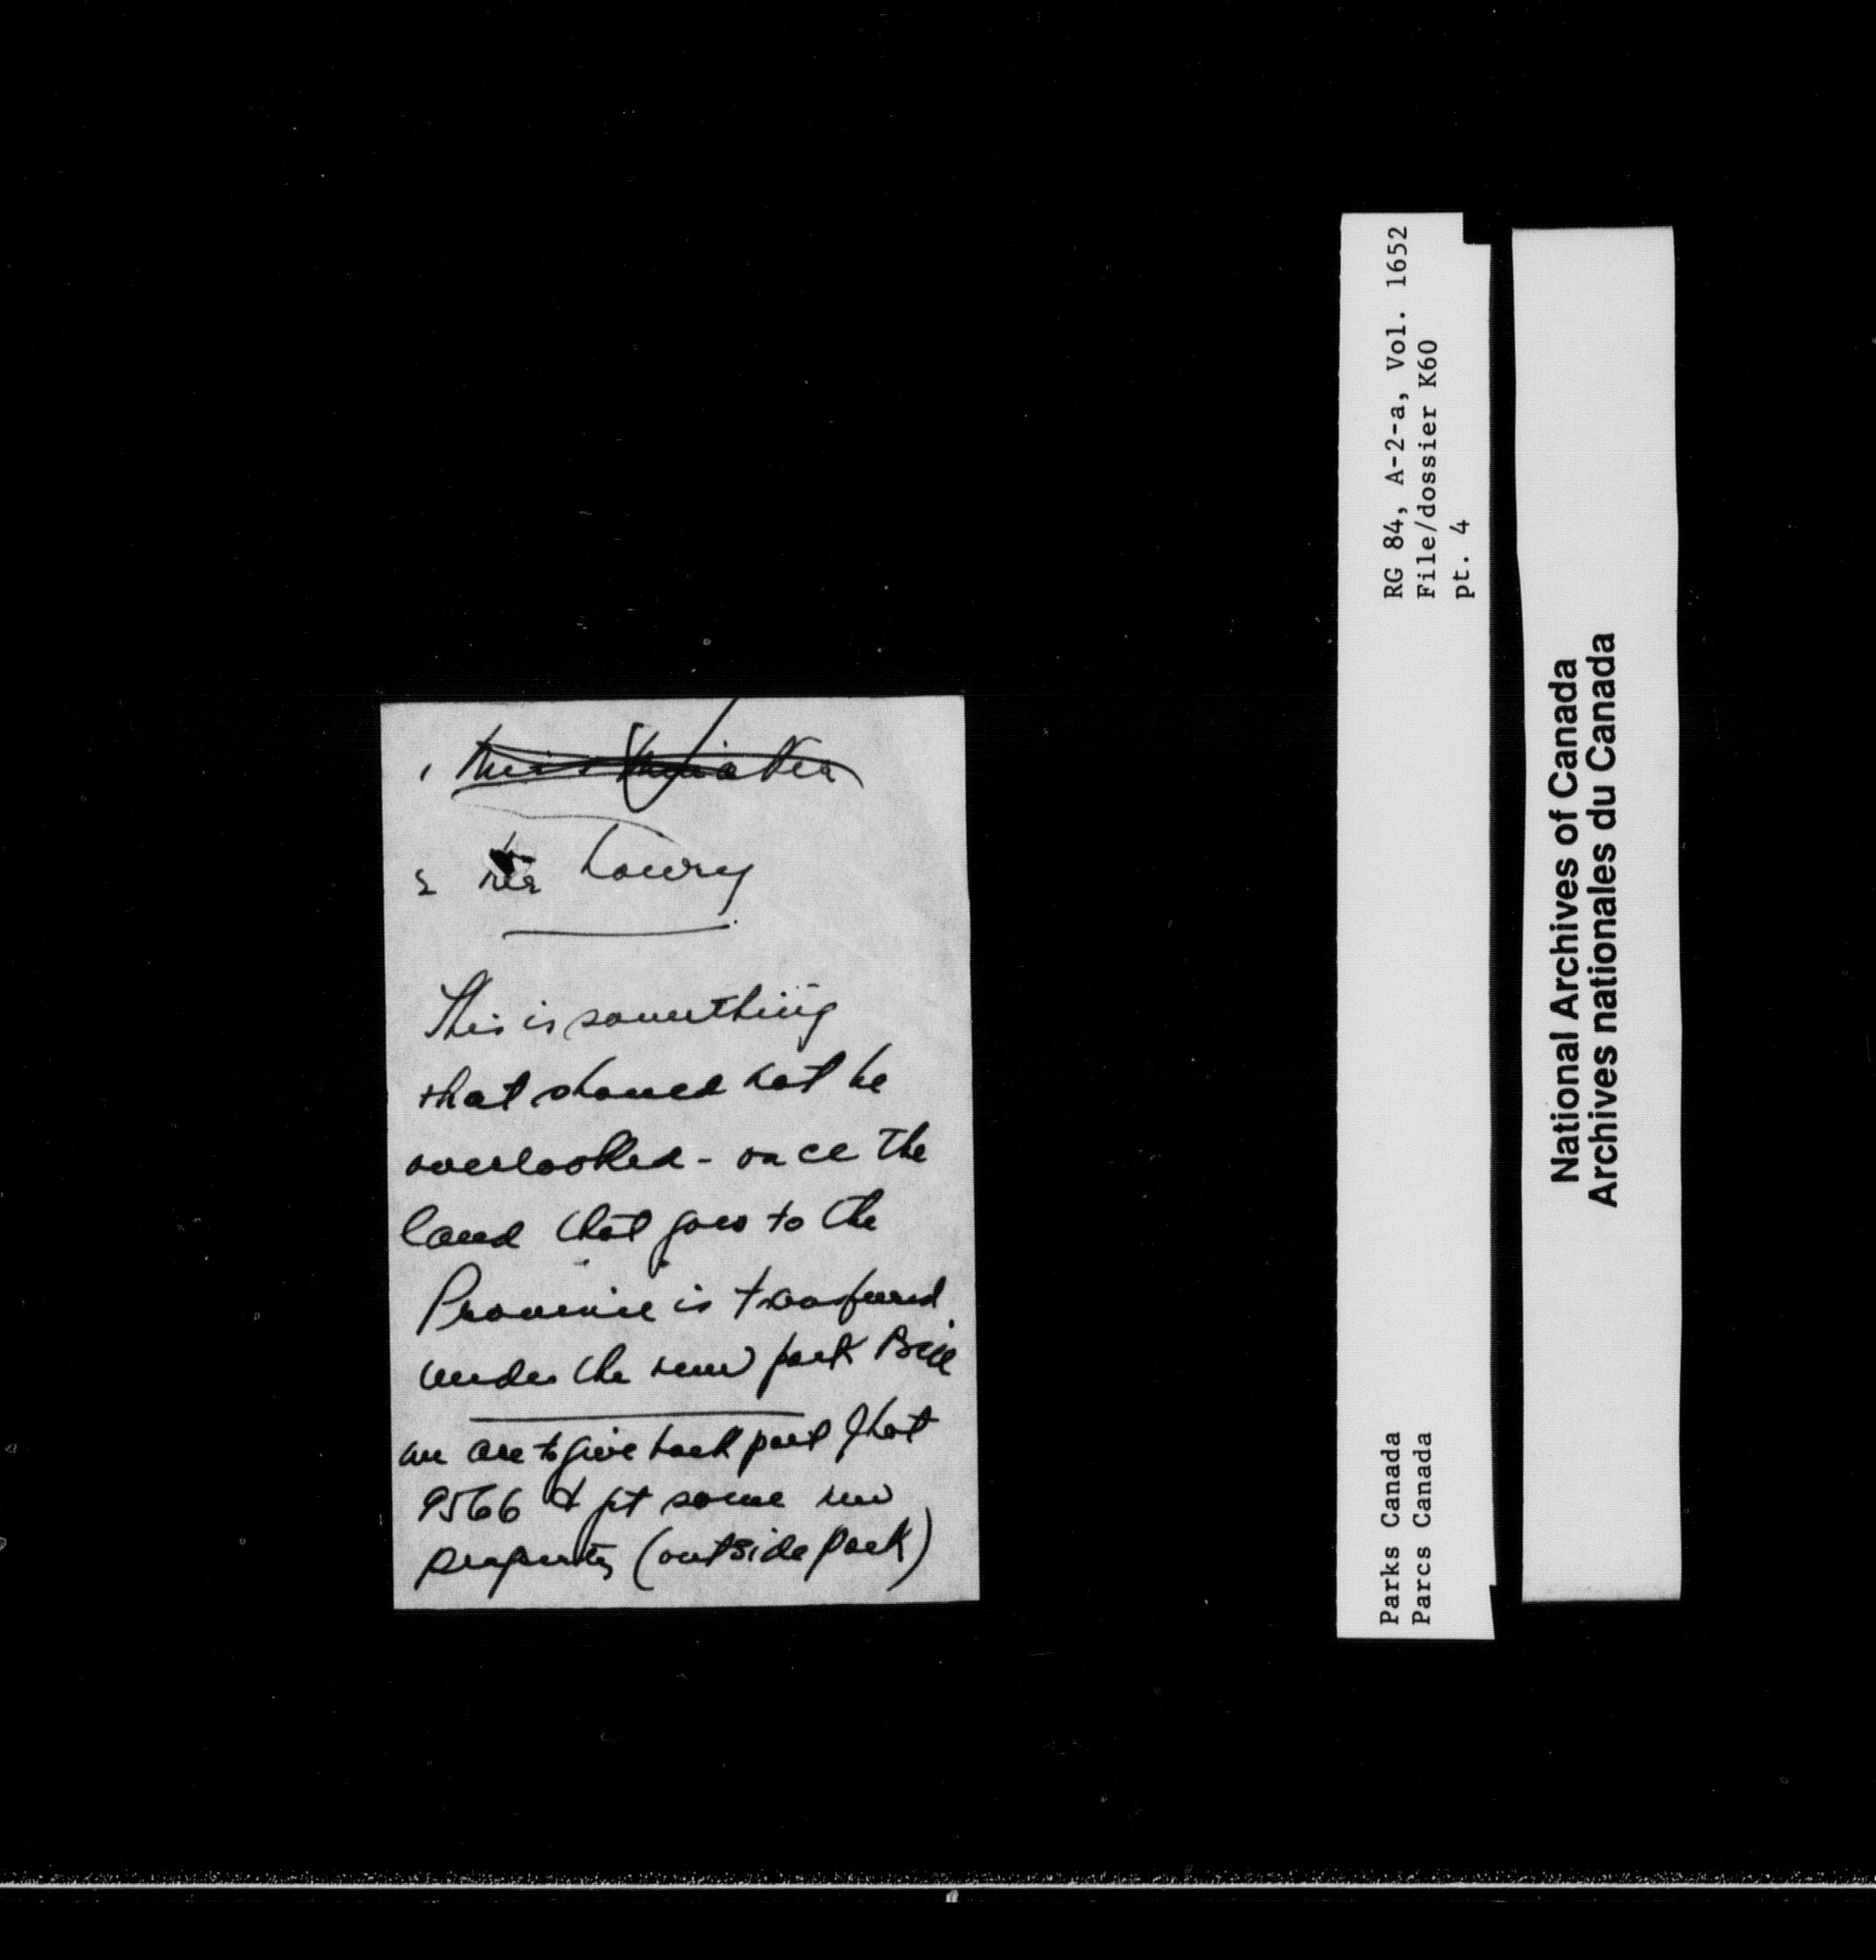 1
2 Mr Lowry
This is something
that should not be
overlooked - once the
land that goes to the
Province is transferred
under the new park Bill
we are to give back part of that
9566 & get some new
property (outside park)
RG 84, A-2-a, Vol. 1652
File/dossier K60
pt. 4
Parks Canada
Parcs Canada
National Archives of Canada
Archives nationales du Canada